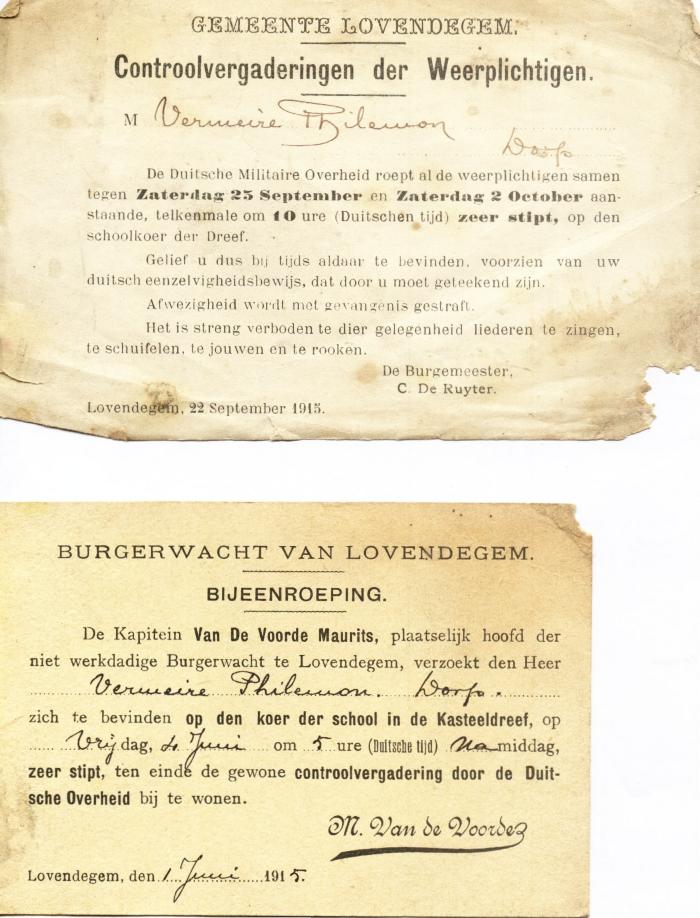 GEMEENTE LOVENDEGEM.
Controolvergaderingen der Weerplichtigen.
M Vermeire Philemon
Dorp
De Duitsche Militaire Overheid roept al de weerplichtigen samen
tegen Zaterdag 25 September en Zaterdag 2 October aan-
staande, telkenmale om 10 ure (Duitschen tijd) zeer stipt, op den
schoolkoer der Dreef.
Gelief u dus bij tijds aldaar te bevinden, voorzien van uw
duitsch eenzelvigheidsbewijs, dat door u moet geteekend zijn.
Afwezigheid wordt met gevangenis gestraft.
Het is streng verboden te dier gelegenheid liederen te zingen,
te schuifelen, te jouwen en te rooken.
De Burgemeester,
C. De Ruyter.
Lovendegem, 22 September 1915.
BURGERWACHT VAN LOVENDEGEM.
BIJEENROEPING.
De Kapitein Van De Voorde Maurits, plaatselijk hoofd der
niet werkdadige Burgerwacht te Lovendegem, verzoekt den Heer
Vermeire Philemon. Dorp.
zich te bevinden op den koer der school in de Kasteeldreef, op
Vrijdag, 4 Juni om 5 ure (Duitsche tijd) Na middag,
zeer stipt, ten einde de gewone controolvergadering door de Duit-
sche Overheid bij te wonen.
M. Van de Voorde
Lovendegem, den 1 Juni 1915.